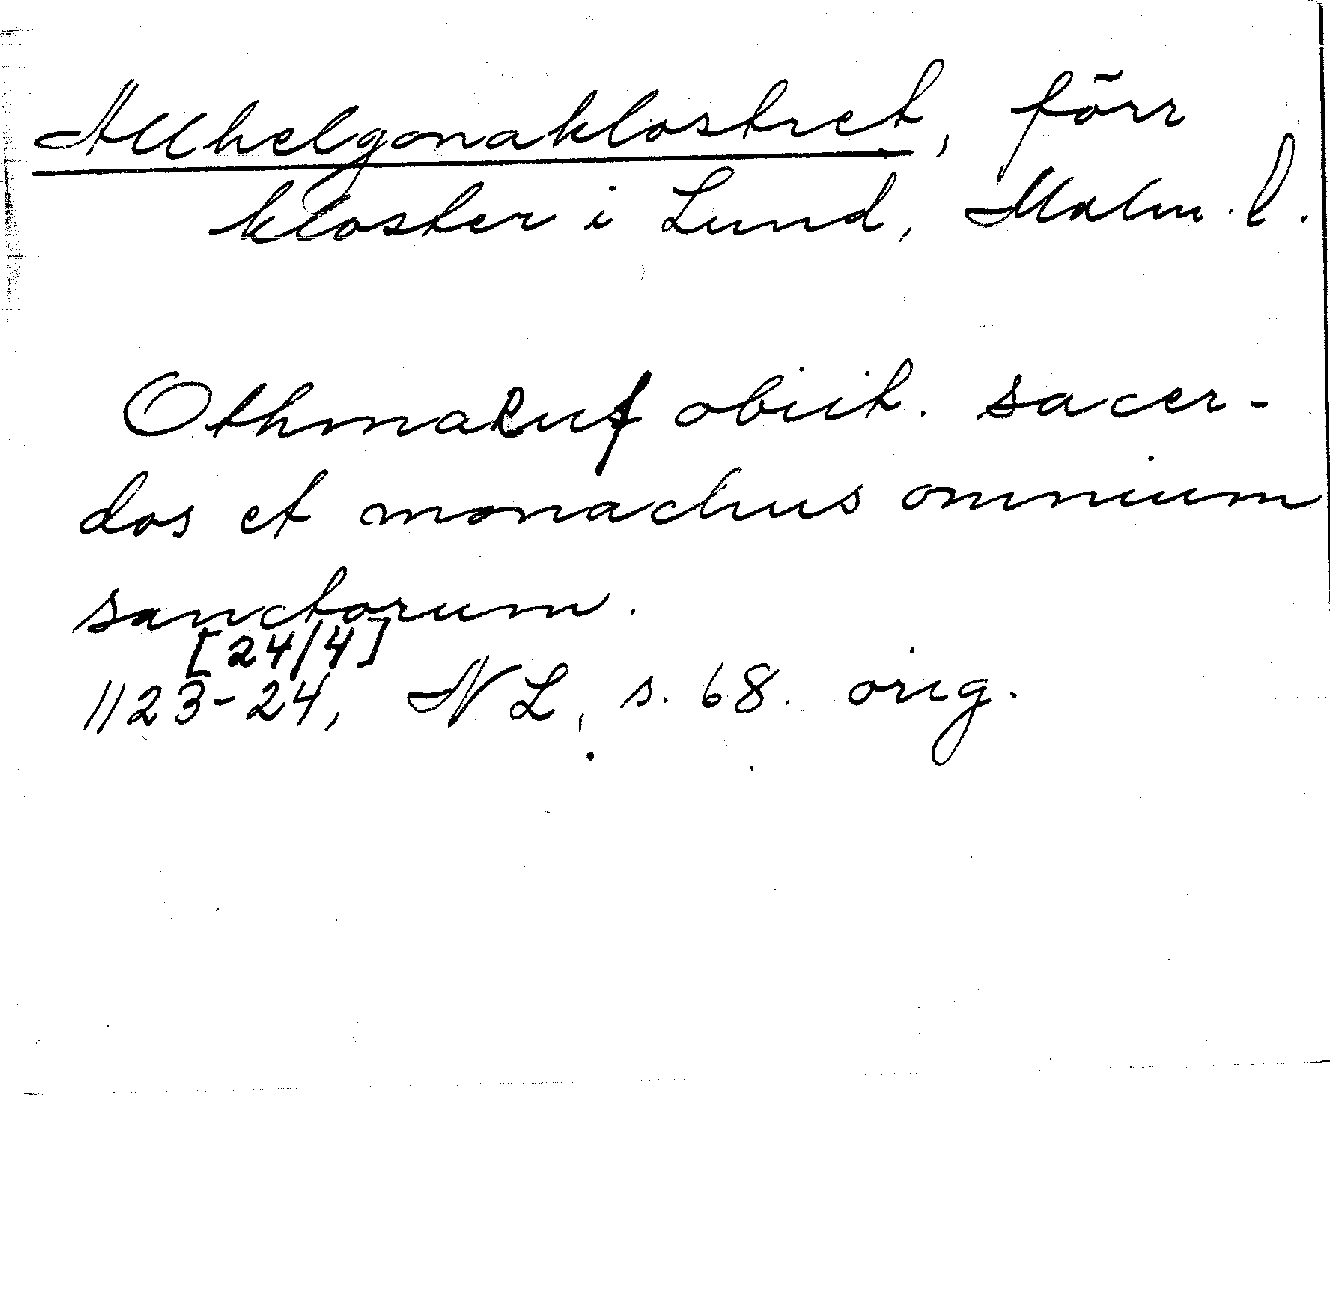 Allhelgonaklostret, förr
kloster i Lund, Malm. l.
Othmaruſ obiit. sacer-
dos et monachus omnium
sanctorum.
[24/4]
1123-24, NL, s. 68. orig.